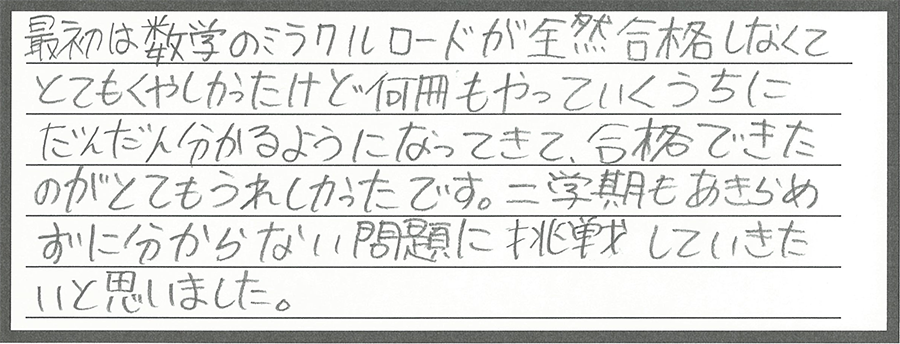 最初は数学のミラクルロードが全然合格しなくて
とてもくやしかったけど何冊もやっていくうちに
だんだん分かるようになってきて、合格できた
のがとてもうれしかったです。二学期もあきらめ
ずに分からない問題に挑戦していきた
いと思いました。